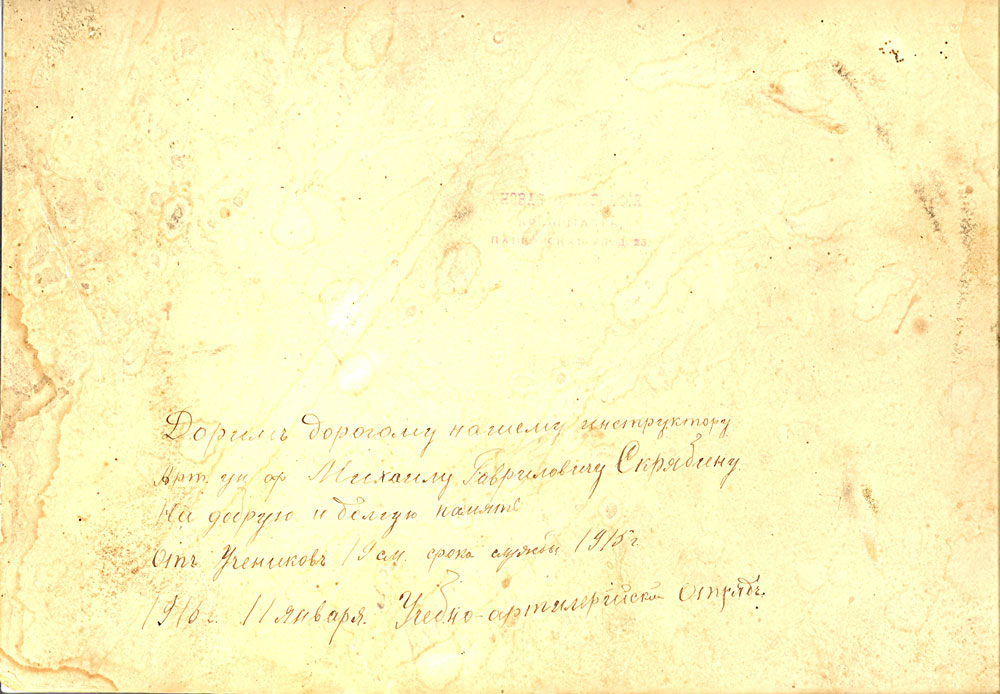 Даримъ дорогому нашему инструктору
Арт. ун оф Михаилу Гавриловичу Скрябину
На добрую и долгую память
Отъ Учениковъ 19 см. срока службы 1915 г.
1916 г. 11 Января. Учебно-артилерійскій Отрядъ.